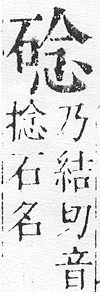 硍
乃結切音
捻石名